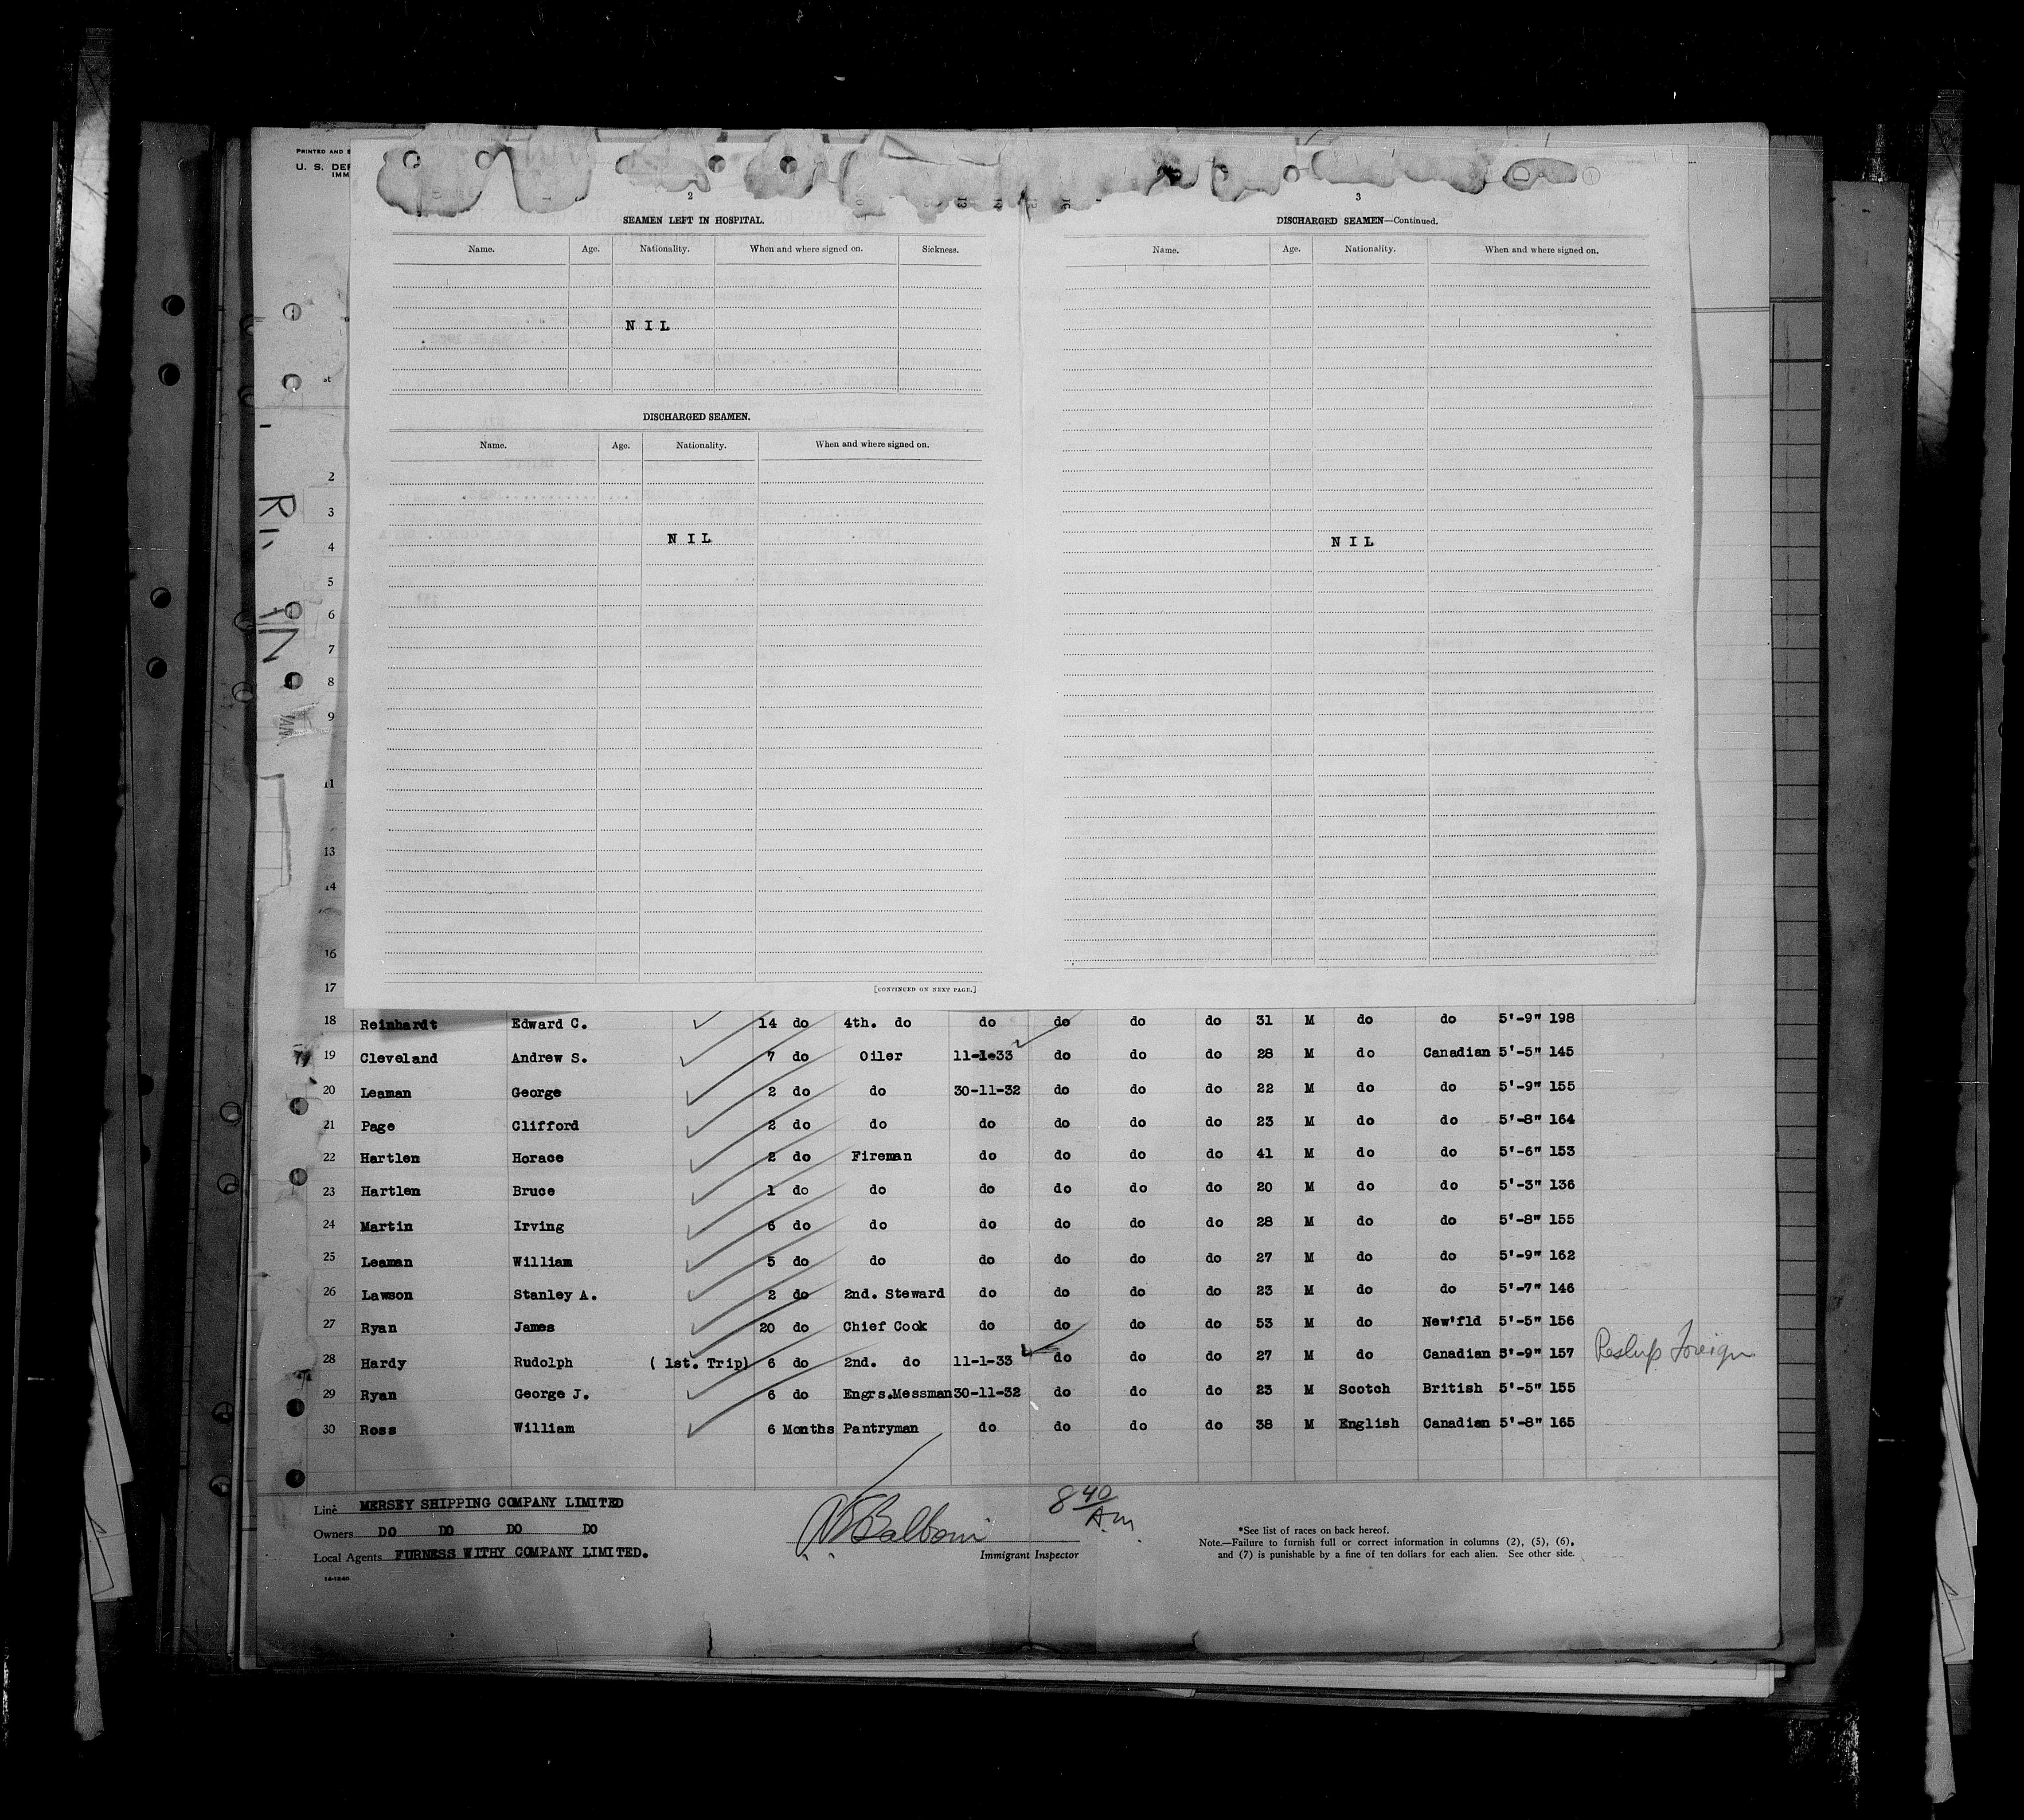 PRINTED AND
U. S. DEP
IMM
2
SEAMEN LEFT IN HOSPITAL.
Name. Age. Nationality. When and where signed on. Sickness.
N I L
DISCHARGED SEAMEN.
Name. Age. Nationality. When and where signed on.
N I L
[CONTINUED ON NEXT PAGE.]
3
DISCHARGED SEAMEN—Continued.
Name. Age. Nationality. When and where signed on.
N I L
st
2
3
4
5
6
7
8
9
11
13
14
16
17
18 Reinhardt Edward C. 14 do 4th. do do do do do 31 M do do 5'-9" 198
19 Cleveland Andrew S. 7 do Oiler 11-1-33 do do do 28 M do Canadian 5'-5" 145
20 Leaman George 2 do do 30-11-32 do do do 22 M do do 5'-9" 155
21 Page Clifford 2 do do do do do do 23 M do do 5'-8" 164
22 Hartlen Horace 2 do Fireman do do do do 41 M do do 5'-6" 153
23 Hartlen Bruce 1 do do do do do do 20 M do do 5'-3" 136
24 Martin Irving 6 do do do do do do 28 M do do 5'-8" 155
25 Leaman William 5 do do do do do do 27 M do do 5'-9" 162
26 Lawson Stanley A. 2 do 2nd. Steward do do do do 23 M do do 5'-7" 146
27 Ryan James 20 do Chief Cook do do do do 53 M do New'fld 5'-5" 156
28 Hardy Rudolph ( 1st. Trip) 6 do 2nd. do 11-1-33 do do do 27 M do Canadian 5'-9" 157 Reship Foreign
29 Ryan George J. 6 do Engrs.Messman 30-11-32 do do do 23 M Scotch British 5'-5" 155
30 Ross William 6 Months Pantryman do do do do 38 M English Canadian 5'-8" 165
Line MERSEY SHIPPING COMPANY LIMITED
Owners DO DO DO DO
Local Agents FURNESS WITHY COMPANY LIMITED.
14-1240
Balboni
Immigrant Inspector
8 40 A.m.
*See list of races on back hereof.
Note.—Failure to furnish full or correct information in columns (2), (5), (6),
and (7) is punishable by a fine of ten dollars for each alien. See other side.